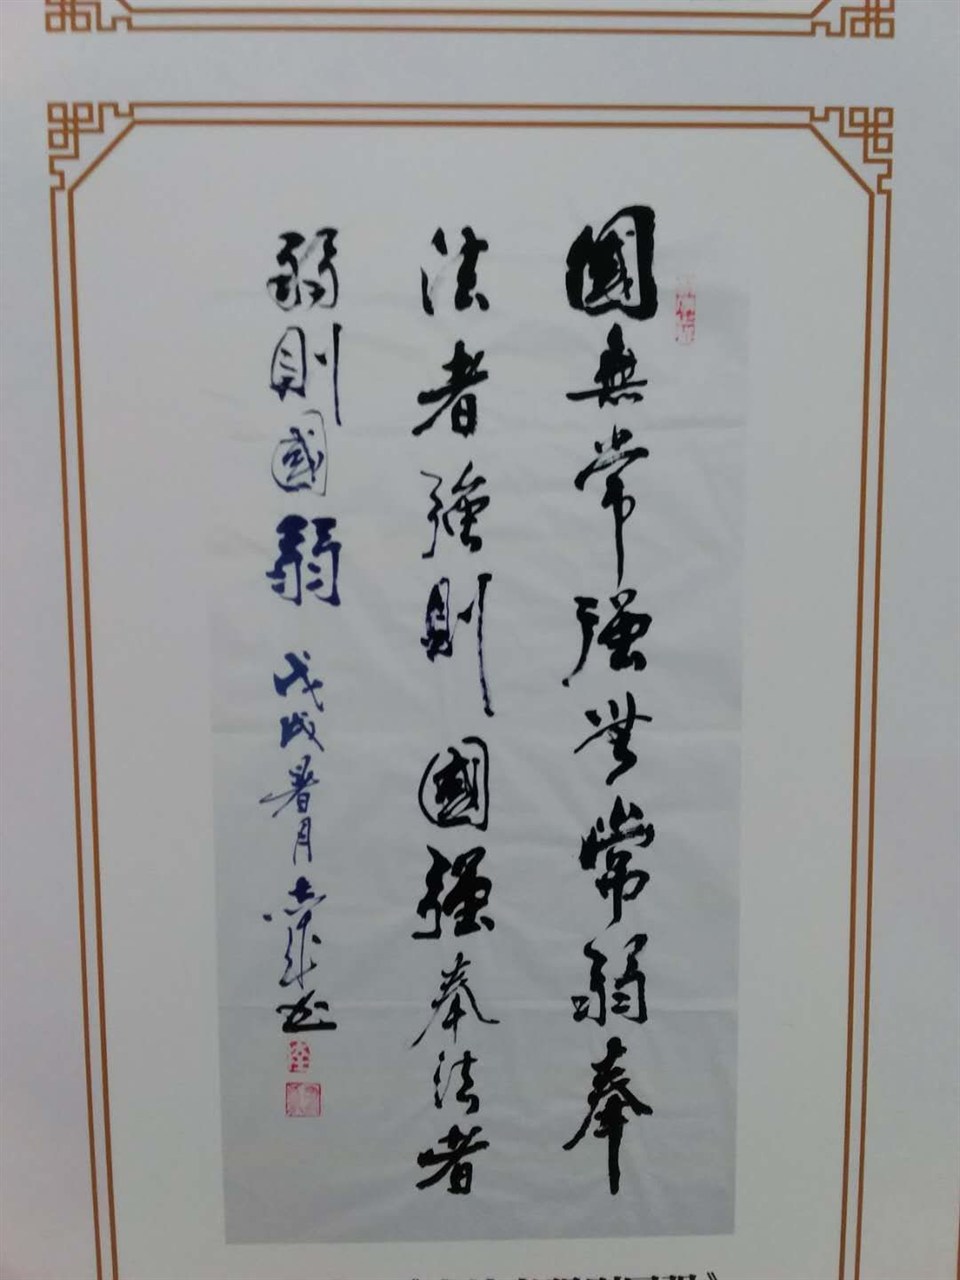 國無常强無常弱奉
法者強則國强奉法者
弱則國弱 戊戌暑月